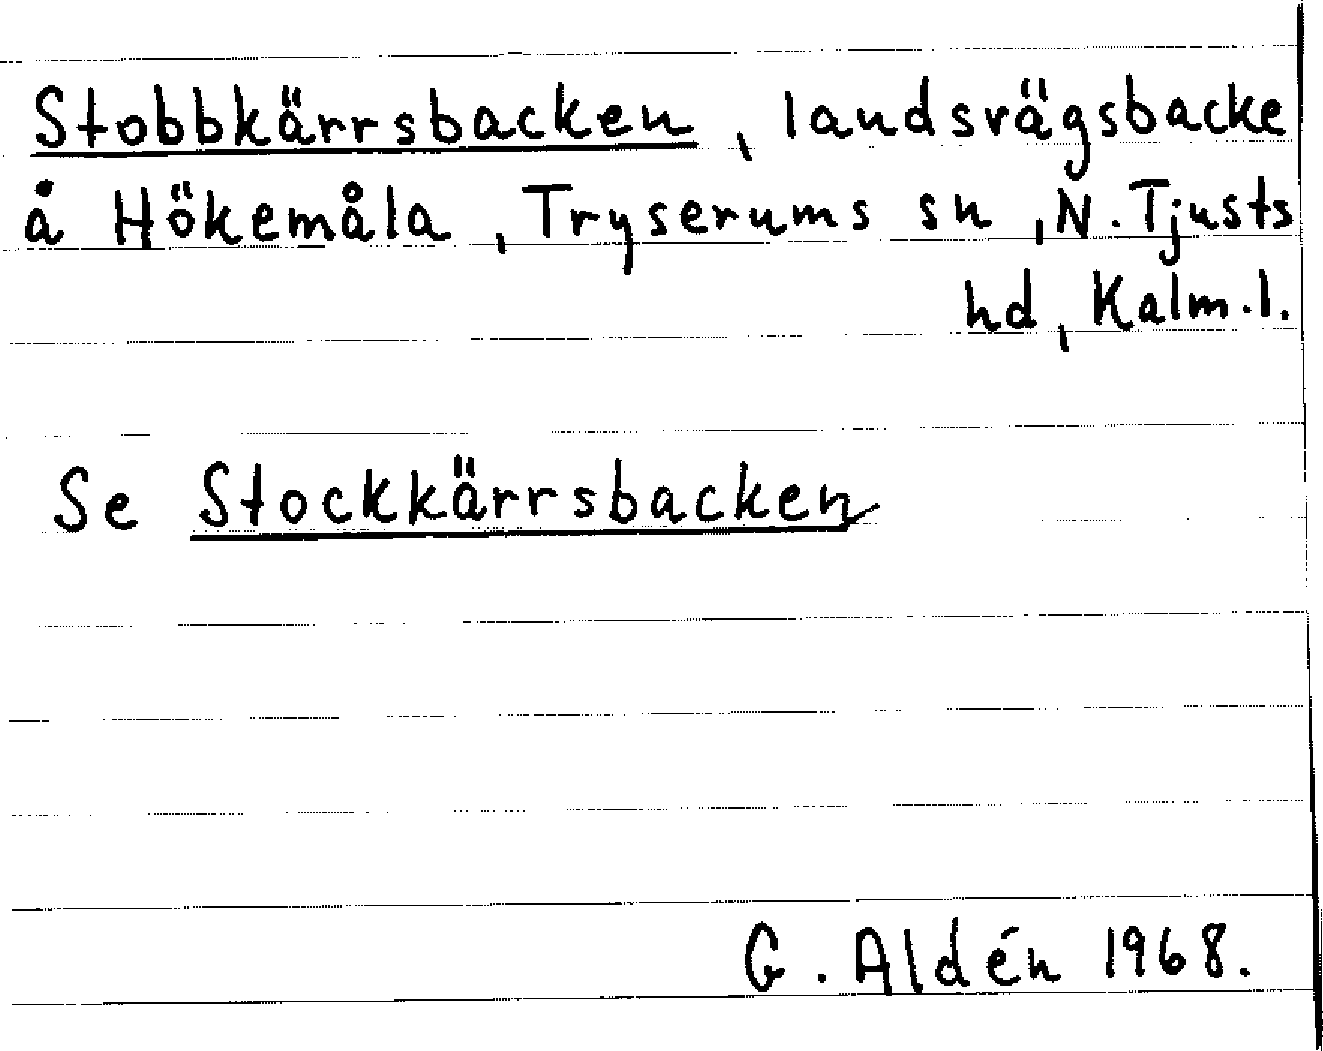 Stobbkärrsbacken, landsvägsbacke
å Hökemåla, Tryserums sn, N. Tjusts
hd, Kalm. l.
Se Stockkärrsbacken
G. Aldén 1968.